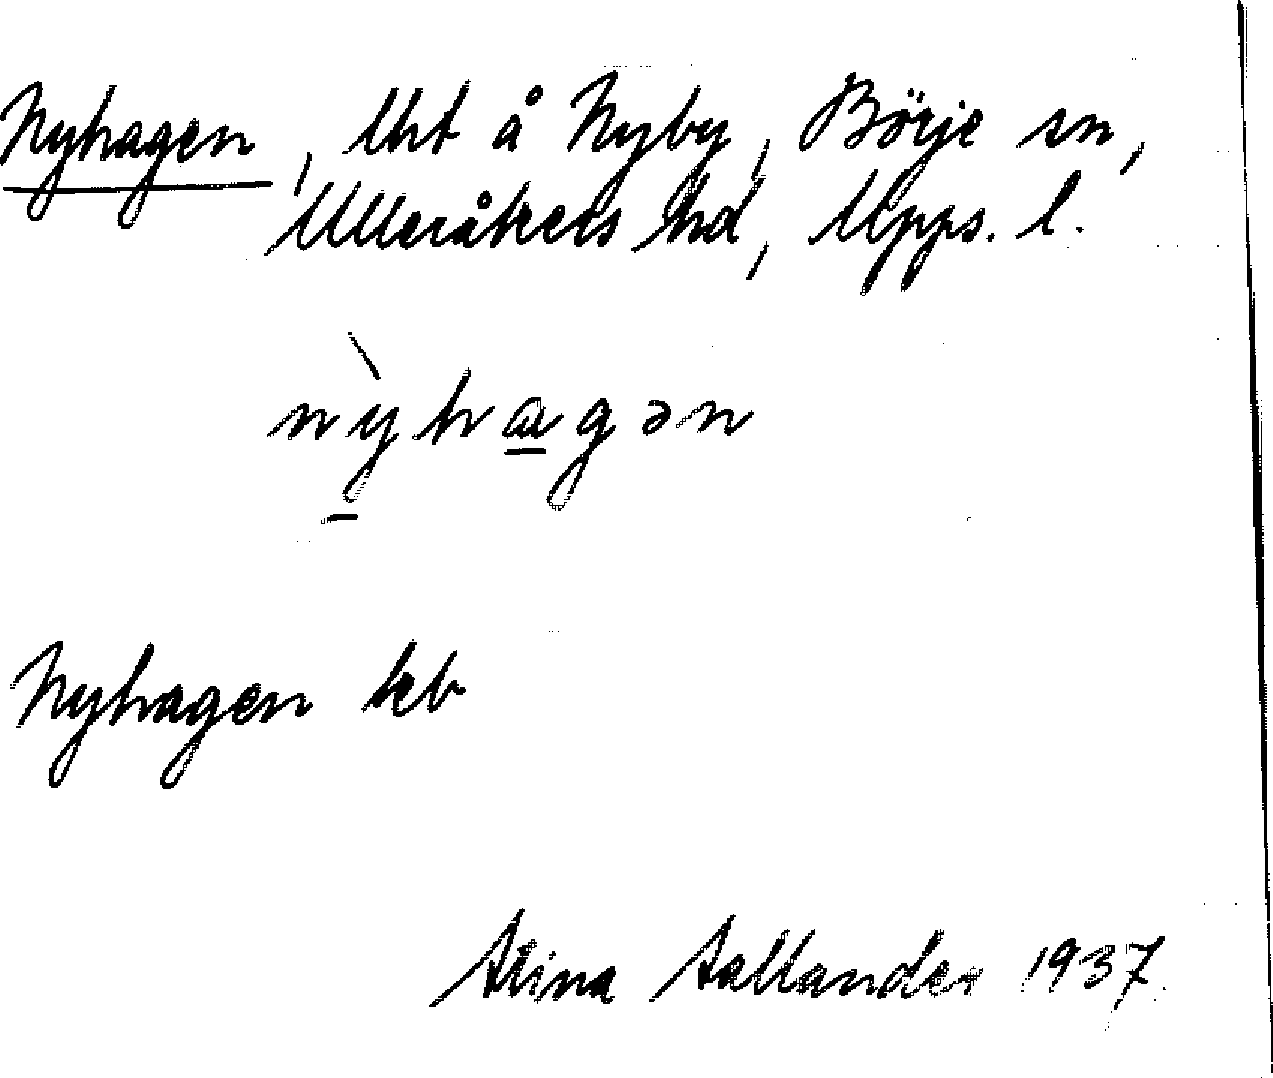 Nyhagen, lht å Nyby, Börje sn,
Ulleråkers hd, Upps. l.
nỳhagən
Nyhagen kb
Stina Sallander 1937